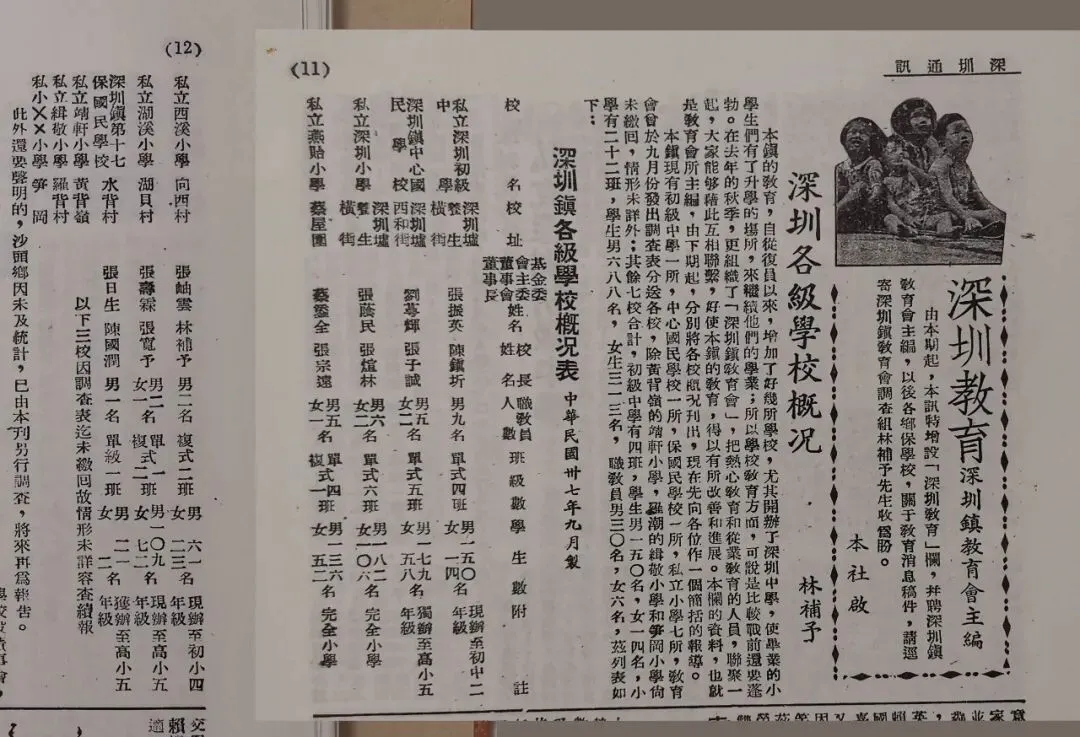 深圳通訊
(11)
深圳教育
深圳鎮教育會主編
由本期起，本訊特增設「深圳教育」欄，幷聘深圳鎮
敎育會主編，以後各鄉保學校，關于敎育消息稿件，請逕
寄深圳鎮敎育會調查組林補予先生收爲盼。
本社啟
深圳各級學校概况
林補予
本鎮的敎育，自從復員以來，增加了好幾所學校，尤其開辦了深圳中學，使畢業的小
學生們有了升學的塲所，來繼續他們的學業；所以學校敎育方面，可說是比較戰前還要蓬
勃。在去年的秋季，更組織了「深圳鎮敎育會」，把熱心敎育和從業敎育的人員，聯聚一
起，大家能够藉此互相聯繫，好使本鎮的敎育，得以有所改善和進展。本欄的資料，也就
是敎育會所主編，由下期起，分別將各校槪况刊出，現在先向各位作一個簡括的報導。
本鎮現有初級中學一所，中心國民學校一所，保國民學校一所，私立小學七所，敎育
會曾於九月份發出調查表分送各校，除黃背嶺的靖軒小學，羅潮的緝敬小學和笋岡小學尙
未繳囘，情形未詳外；其餘七校合計，初級中學有四班，學生男一五〇名，女一四名，小
學有二十二班，學生男六八八名，女生三一三名，職敎員男三〇名，女六名，茲列表如
下：
深圳鎮各級學校槪况表 中華民國卅七年九月製
校名 校址 基金委會主委董事會董事長姓名 校長姓名 職敎員人數 班級數 學生數 附註
私立深圳初級中學 深圳墟養生橫街 張振英 陳鎮圻 男九名 單式四班 男一五〇名女一四 現辦至初中二年級
深圳鎮中心國民學校 深圳墟西和街 劉蕚輝 張子誠 男五名女二 單式五班 男一七九名女五八 獨辦至高小五年級
私立深圳小學 深圳墟養生橫街 張蔭民 張煊林 男六名女二 單式六班 男一八二名女一〇六 完全小學
私立燕貽小學 蔡屋圍 蔡鎏全 張宗遠 男五名女一 單式四班複式一班 男一三六名女五二 完全小學
(12)
私立西溪小學 向西村 張岫雲 林補予 男二名 複式二班 男六一名女二三 現辦至初小四年級
私立湖溪小學 湖貝村 張壽霖 張寬予 男二名女一 單式一班複式二 男一〇九名女七二 現辦至高小五年級
深圳鎮第十七保國民學校 水背村 張日生 陳國潤 男一名 單級一班 男二一名女二 獲辦至高小五年級
私立靖軒小學 黃背嶺
私立緝敬小學 羅背村
私小××小學 笋岡
以下三校因調查表迄未繳囘故情形未詳容查續報
此外還要聲明的，沙頭鄉因未及統計，已由本刊另行調查，將來再爲報告。